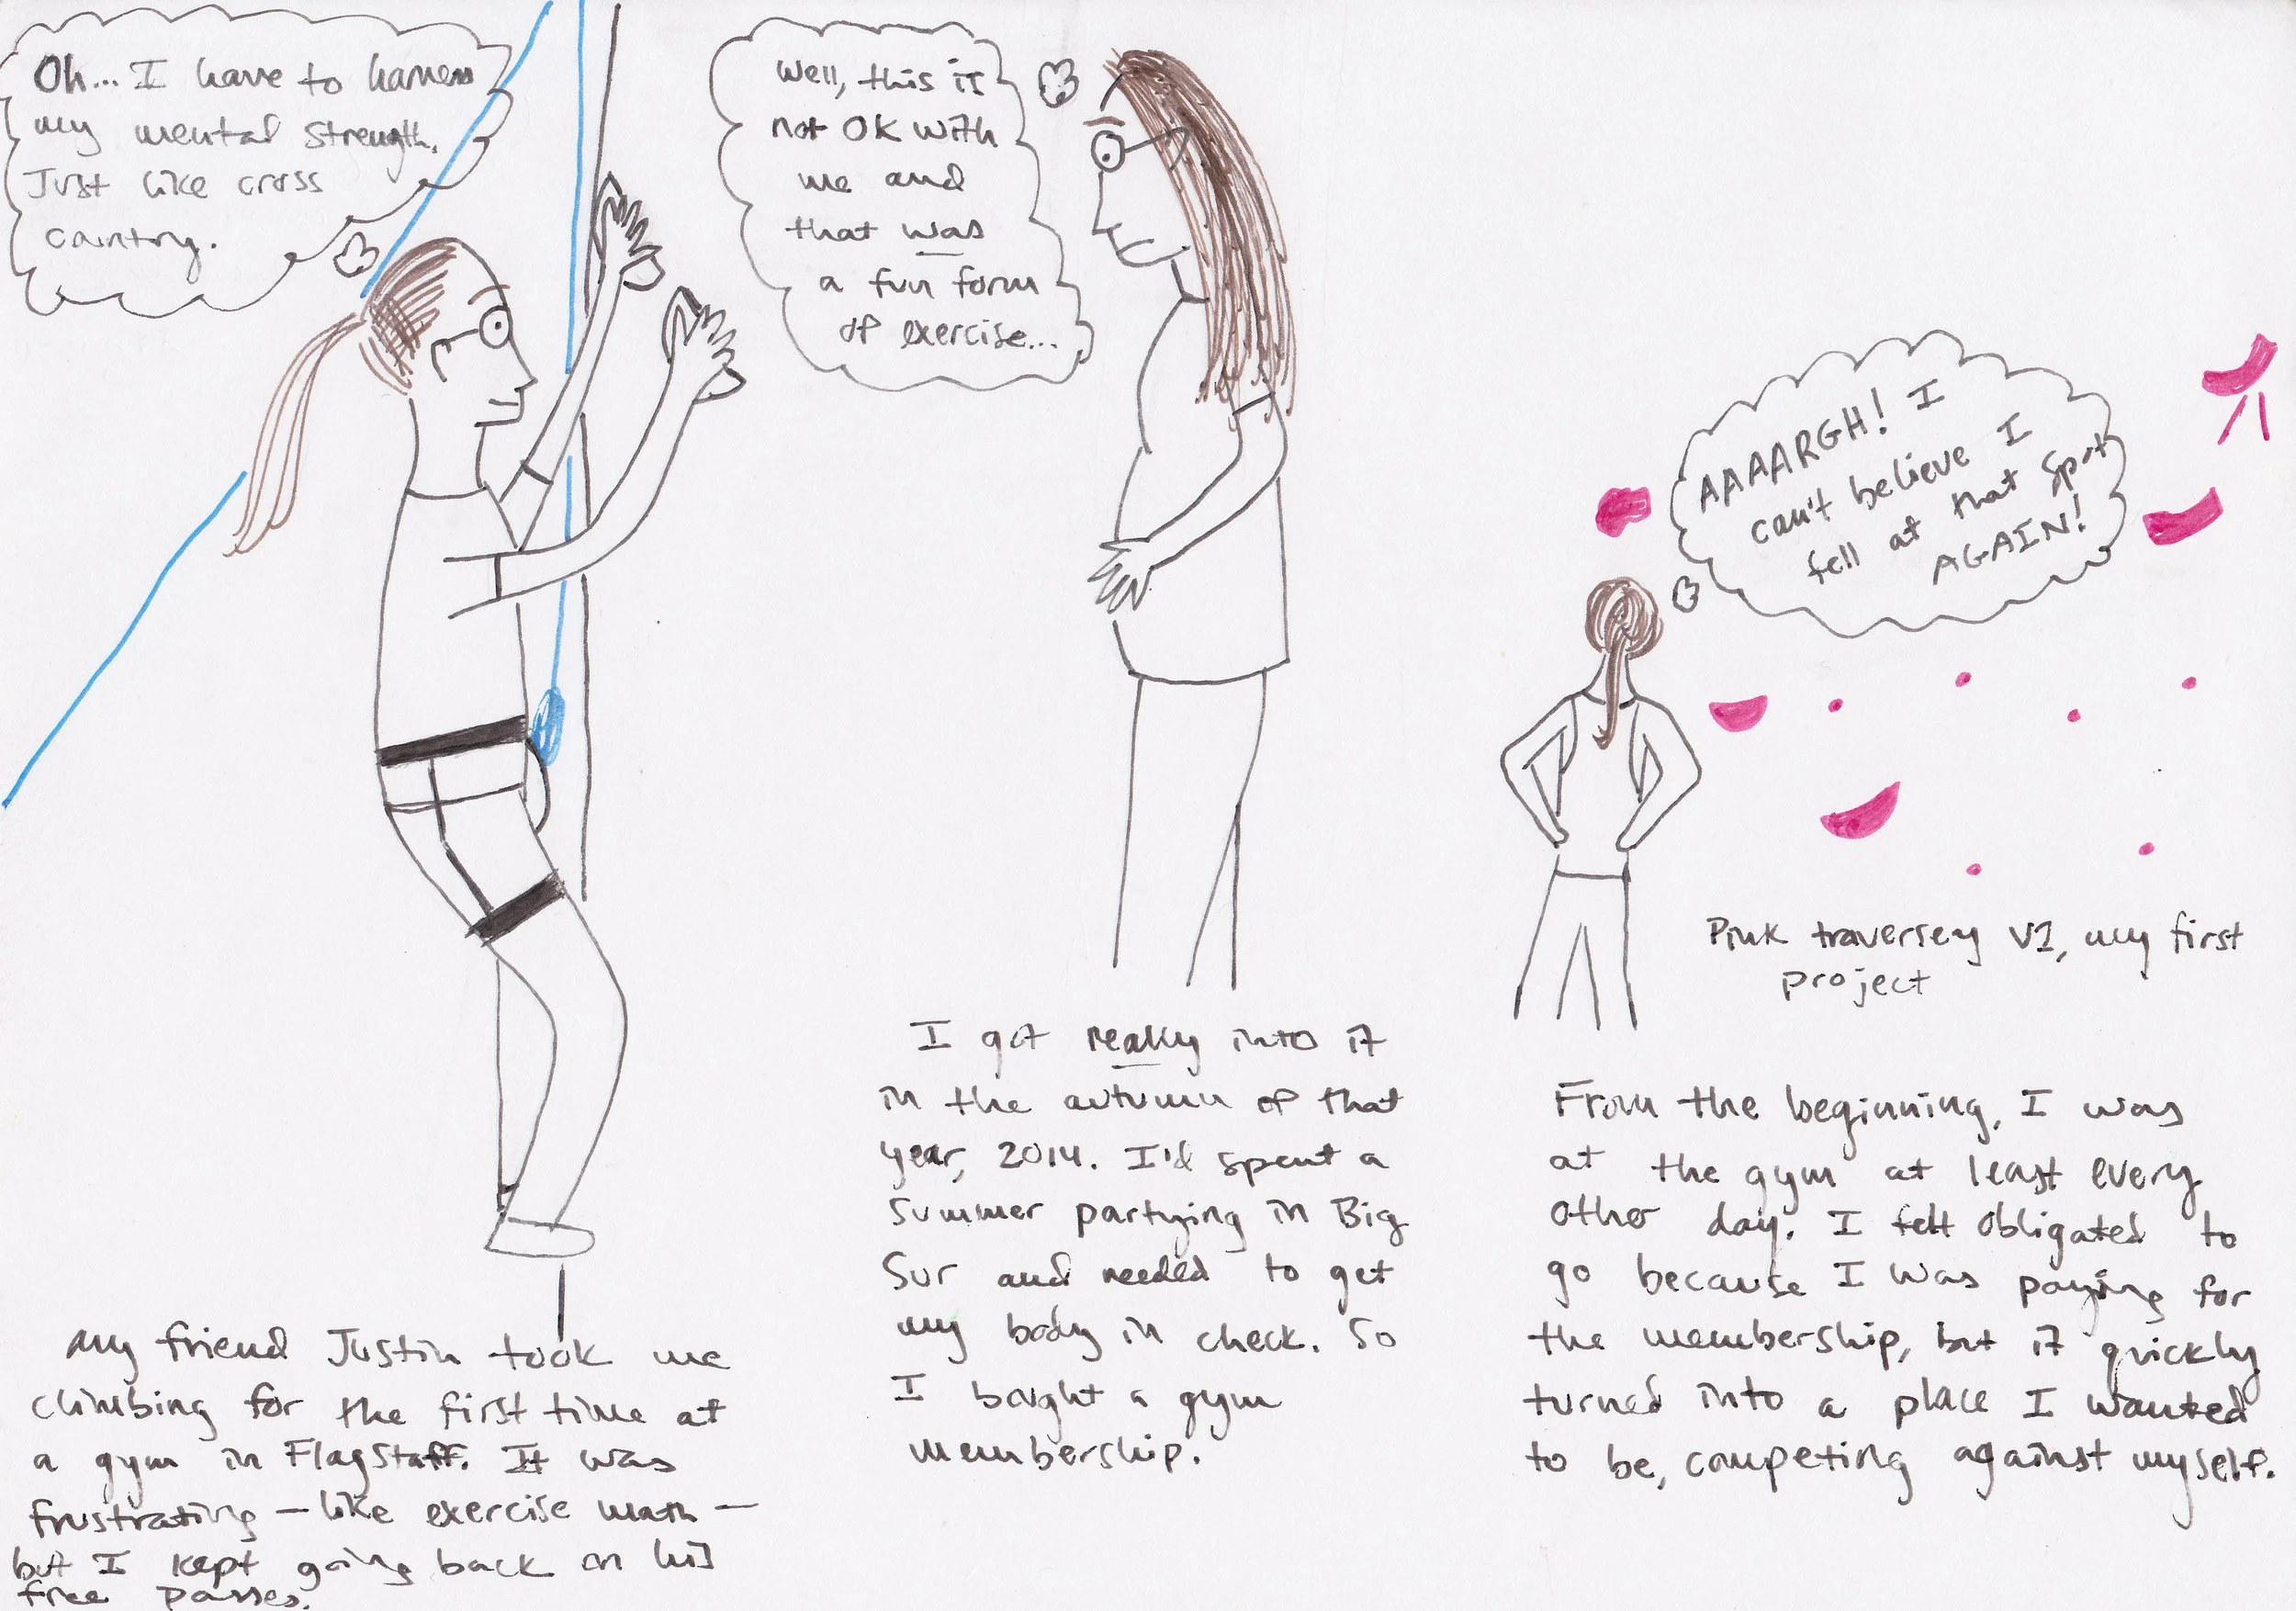 Oh... I have to harness
my mental strength.
Just like cross
country.
My friend Justin took me
climbing for the first time at
a gym in Flagstaff. It was
frustrating – like exercise math –
but I kept going back on his
free passes.
Well, this is
not OK with
me and
that was
a fun form
of exercise...
I got really into it
in the autumn of that
year, 2014. I'd spent a
summer partying in Big
Sur and needed to get
my body in check. So
I bought a gym
membership.
AAAARGH! I
can't believe I
fell at that spot
AGAIN!
Pink traversey V1, my first
project
From the beginning, I was
at the gym at least every
other day. I felt obligated to
go because I was paying for
the membership, but it quickly
turned into a place I wanted
to be, competing against myself.